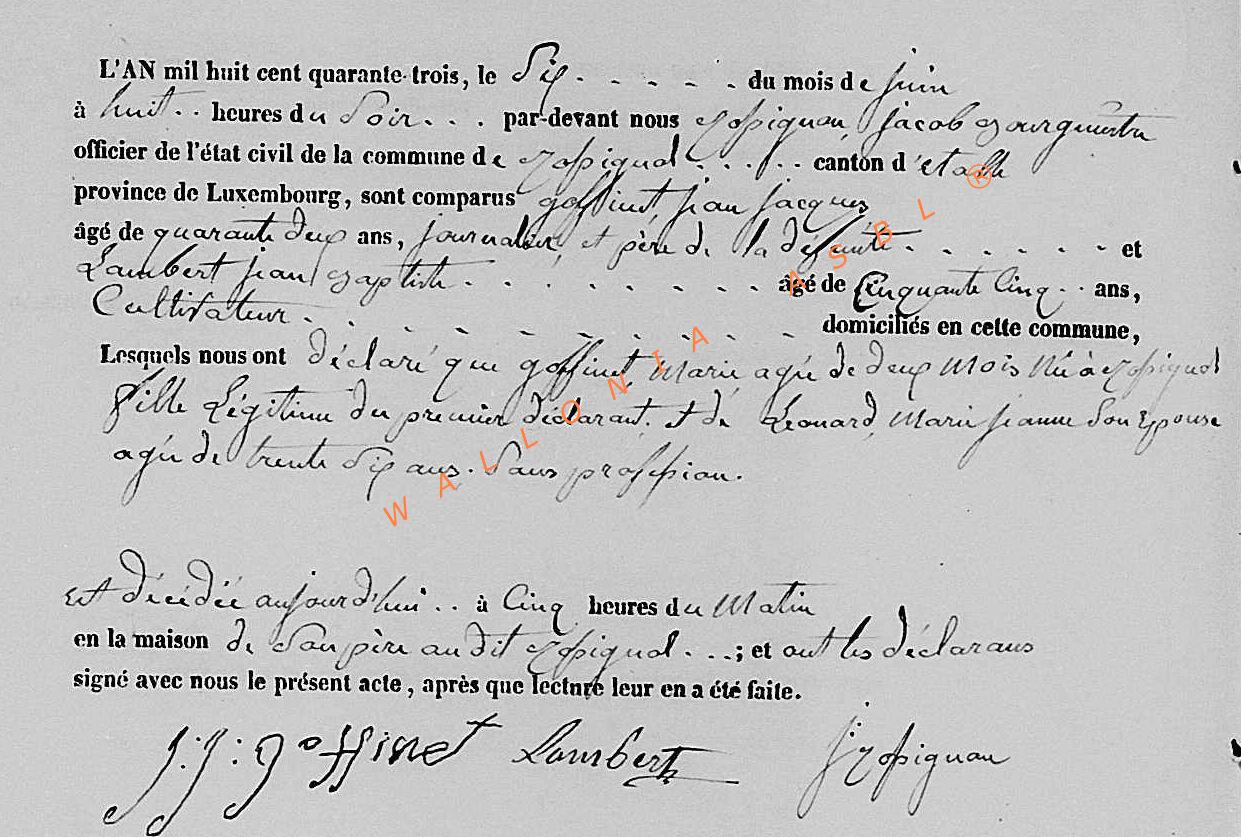 L'AN mil huit cent quarante-trois, le Six . - - - - du mois de juin
à huit . . heures du Soir . . . par-devant nous Rossignon, jacob Bourguemetre
officier de l'état civil de la commune de Rossignol . . . . . canton d'étalle
province de Luxembourg, sont comparus goffinet, jean jacques
âgé de quarante deux ans, journalier, et père de la defunte . . . . . . et
Lambert jean Baptiste . . . . . . . . . âgé de Cinquante Cinq . . ans,
Cultivateur . . . . . . . . . . domiciliés en cette commune,
Lesquels nous ont déclaré que goffinet, Marie, agée de deux Mois Née à Rossignol
fille Légitime du premier déclarant. et de Léonard, Marie jeanne Son Epouse
agée de trente Six ans. Sans profession.
Est décédée aujourd'hui . . à Cinq heures du Matin
en la maison de Son père au dit Rossignol . . . ; et ont les déclarans
signé avec nous le présent acte, après que lecture leur en a été faite.
j. j. goffinet Lambert j Rossignon
WALLONIA ASBL ®